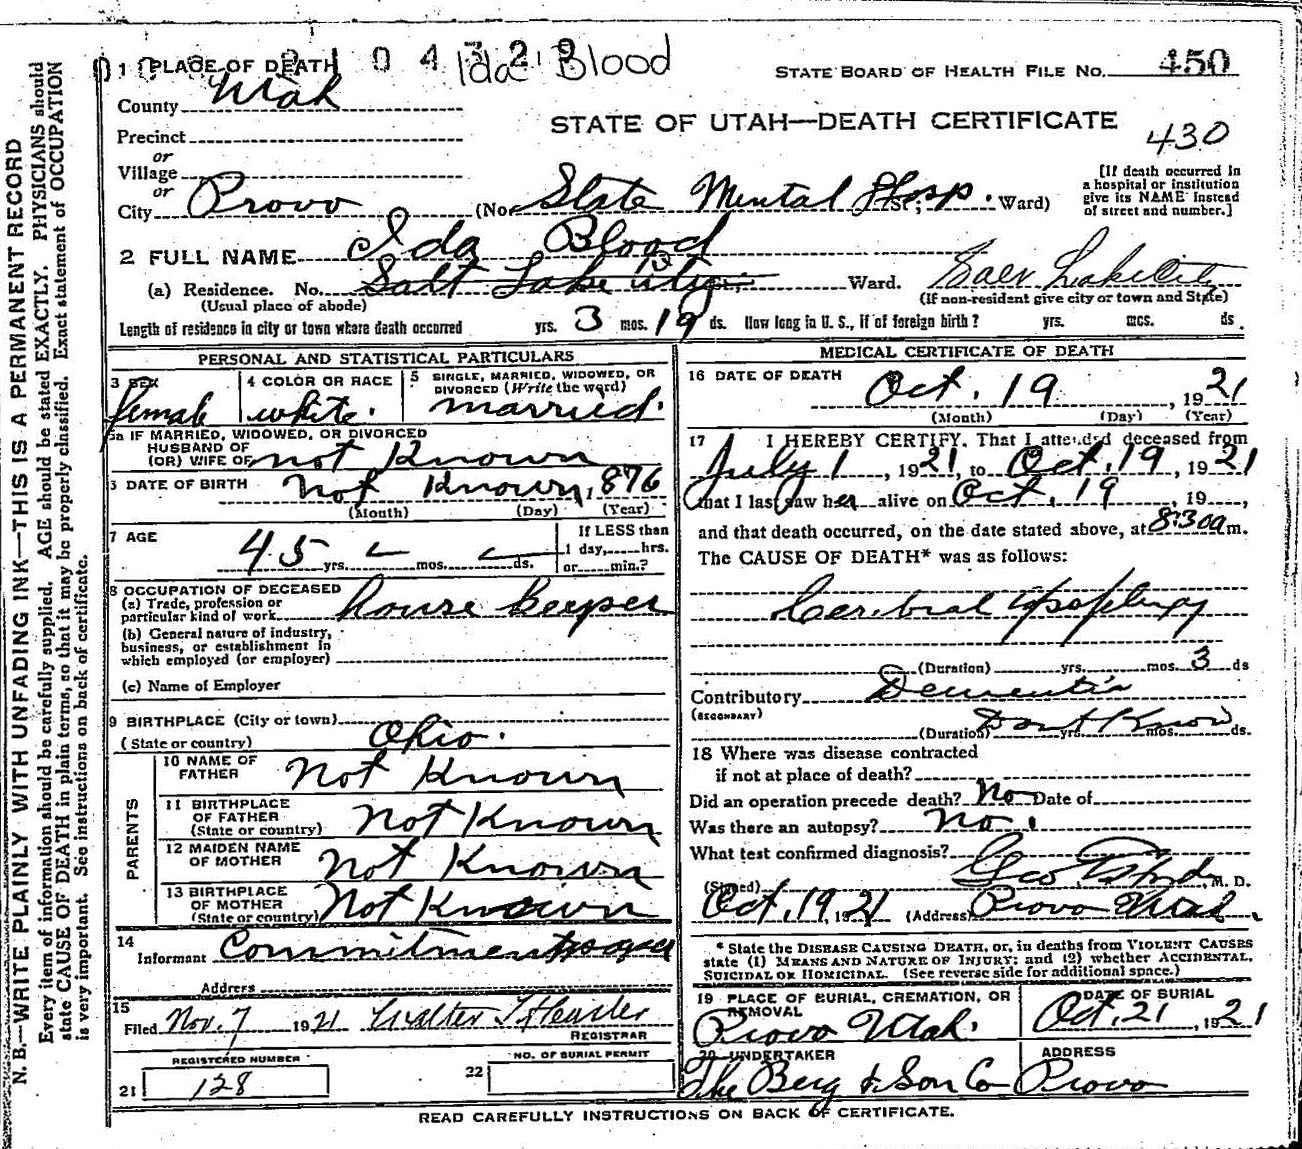 1 PLACE OF DEATH 0 4 3 2 9 Ida Blood
STATE BOARD OF HEALTH FILE NO. 450
County Utah
STATE OF UTAH—DEATH CERTIFICATE
430
Precinct
or
Village
or
City Provo (No. State Mental Hosp. St.; Ward)
[If death occurred in
a hospital or institution
give its NAME instead
of street and number.]
2 FULL NAME Ida Blood
(a) Residence. No. Salt Lake City St., Ward. Salt Lake City
(Usual place of abode)
(If non-resident give city or town and State)
Length of residence in city or town where death occurred yrs. 3 mos. 19 ds. How long in U. S., if of foreign birth? yrs. mcs. ds.
PERSONAL AND STATISTICAL PARTICULARS
3 SEX
female
4 COLOR OR RACE
white.
5 SINGLE, MARRIED, WIDOWED, OR
DIVORCED (Write the word)
married.
5a IF MARRIED, WIDOWED, OR DIVORCED
HUSBAND OF
(OR) WIFE OF not Known
6 DATE OF BIRTH not Known, 1876
(Month) (Day) (Year)
7 AGE
45 yrs. mos. ds.
If LESS than
1 day, hrs.
or min.?
8 OCCUPATION OF DECEASED
(a) Trade, profession or
particular kind of work house keeper
(b) General nature of industry,
business, or establishment in
which employed (or employer)
(c) Name of Employer
9 BIRTHPLACE (City or town)
(State or country) Ohio.
PARENTS
10 NAME OF
FATHER Not Known
11 BIRTHPLACE
OF FATHER
(State or country) Not Known
12 MAIDEN NAME
OF MOTHER Not Known
13 BIRTHPLACE
OF MOTHER
(State or country) Not Known
14
Informant Commitment
Address
15
Filed Nov. 7 1921 Walter T
REGISTRAR
REGISTERED NUMBER
21 128
NO. OF BURIAL PERMIT
22
MEDICAL CERTIFICATE OF DEATH
16 DATE OF DEATH
Oct. 19, 1921
(Month) (Day) (Year)
17 I HEREBY CERTIFY, That I attended deceased from
July 1, 1921, to Oct. 19, 1921
that I last saw her alive on Oct. 19, 19
and that death occurred, on the date stated above, at 8:30a m.
The CAUSE OF DEATH* was as follows:
Cerebral Apoplexy
(Duration) yrs. mos. 3 ds
Contributory Dementia
(SECONDARY)
(Duration) Dont Know yrs. mos. ds.
18 Where was disease contracted
if not at place of death?
Did an operation precede death? No Date of
Was there an autopsy? no.
What test confirmed diagnosis?
(Signed) Geo. M. D.
Oct. 19, 1921 (Address) Provo Utah.
* State the DISEASE CAUSING DEATH, or, in deaths from VIOLENT CAUSES
state (1) MEANS AND NATURE OF INJURY; and (2) whether ACCIDENTAL,
SUICIDAL OR HOMICIDAL. (See reverse side for additional space.)
19 PLACE OF BURIAL, CREMATION, OR
REMOVAL
Provo Utah.
DATE OF BURIAL
Oct. 21, 1921
20 UNDERTAKER
The Berg & Son Co
ADDRESS
Provo
READ CAREFULLY INSTRUCTIONS ON BACK OF CERTIFICATE.
N. B.—WRITE PLAINLY WITH UNFADING INK—THIS IS A PERMANENT RECORD
Every item of information should be carefully supplied. AGE should be stated EXACTLY. PHYSICIANS should
state CAUSE OF DEATH in plain terms, so that it may be properly classified. Exact statement of OCCUPATION
is very important. See instructions on back of certificate.